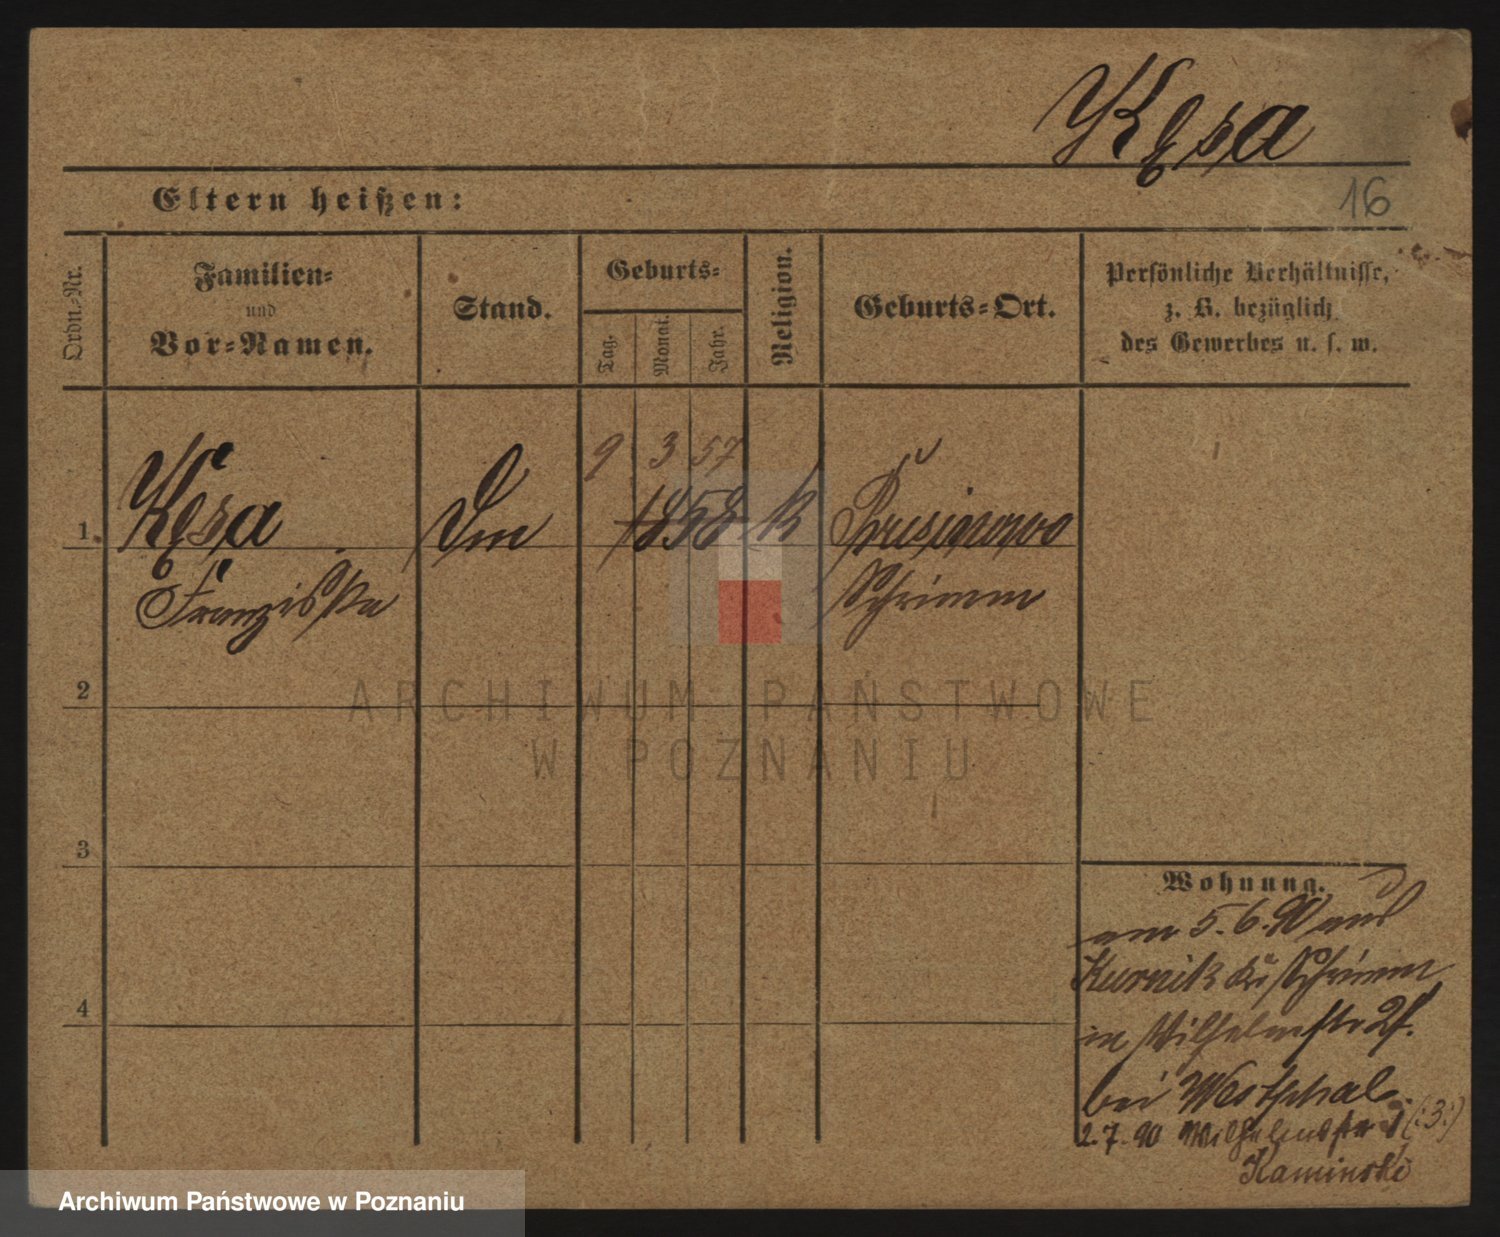 Kęsa
16
Eltern heißen:
Ordn.-Nr.
Familien-
und
Vor-Namen.
Stand.
Geburts-
Tag.
Monat.
Jahr.
Religion.
Geburts-Ort.
Persönliche Verhältnisse,
z. B. bezüglich
des Gewerbes u. s. w.
9 3 57
1 Kęsa 1858 k Brusinowo
Franziska Schrimm
2
ARCHIWUM PAŃSTWOWE
W POZNANIU
3
4
Wohnung.
am 5.6.90 aus
Kurnik Kr Schrimm
in Wilhelmstr 21.
bei Westphal.
2.7.90 Wilhelmstr (:3:)
Kaminski
Archiwum Państwowe w Poznaniu